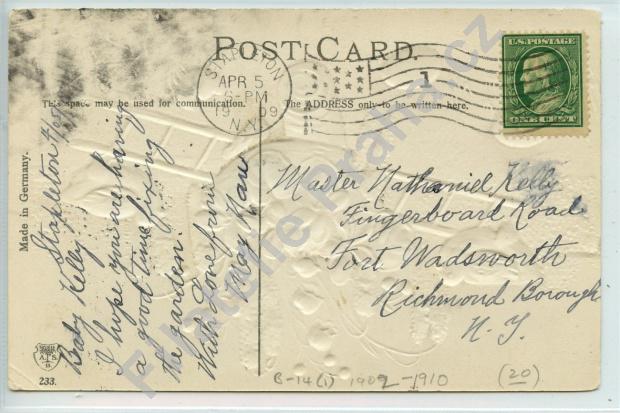 POST CARD.
STAPLETON
APR 5
6-PM
19 09
N.Y.
1
U.S. POSTAGE
ONE CENT
This space may be used for communication.
The ADDRESS only to be written here.
Made in Germany.
Stapleton
Baby Kelly:
I hope you are having
a good time fixing
the garden.
With Love from
May
Master Nathaniel Kelly
Fingerboard Road
Fort Wadsworth
Richmond Borough
N. Y.
233.
B-14(1) 1909-1910
(20)